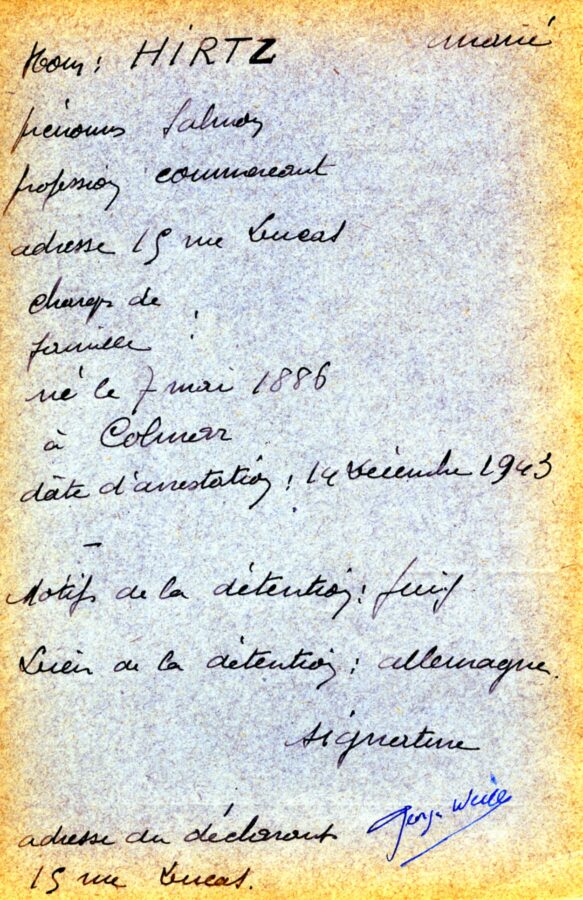 Nom : HIRTZ marié
prénoms Salmon
profession commercant
adresse 15 rue Lucas
charges de
famille :
né le 7 mai 1886
à Colmar
date d'arrestation : 14 Décembre 1943
–
Motifs de la détention : juif
Lieu de la détention : allemagne.
signature
Georges Weill
adresse du déclarant
15 rue Lucas.